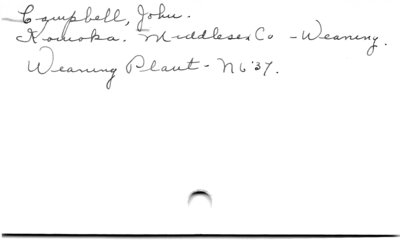 Campbell, John.
Komoka. Middlesex Co - Weaving.
Weaving Plant - N6'37.